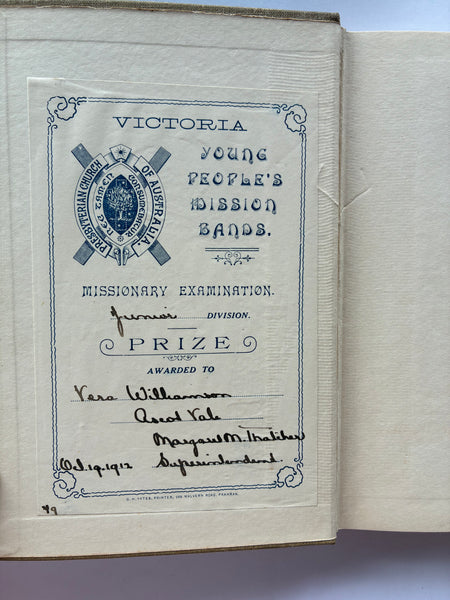 VICTORIA
PRESBYTERIAN CHURCH OF AUSTRALIA
NEC TAMEN CONSUMEBATUR
YOUNG
PEOPLE'S
MISSION
BANDS.
MISSIONARY EXAMINATION.
Junior DIVISION.
PRIZE
AWARDED TO
Vera Williamson
Ascot Vale
Margaret M. Thatcher
Oct. 19. 1912 Superintendent.